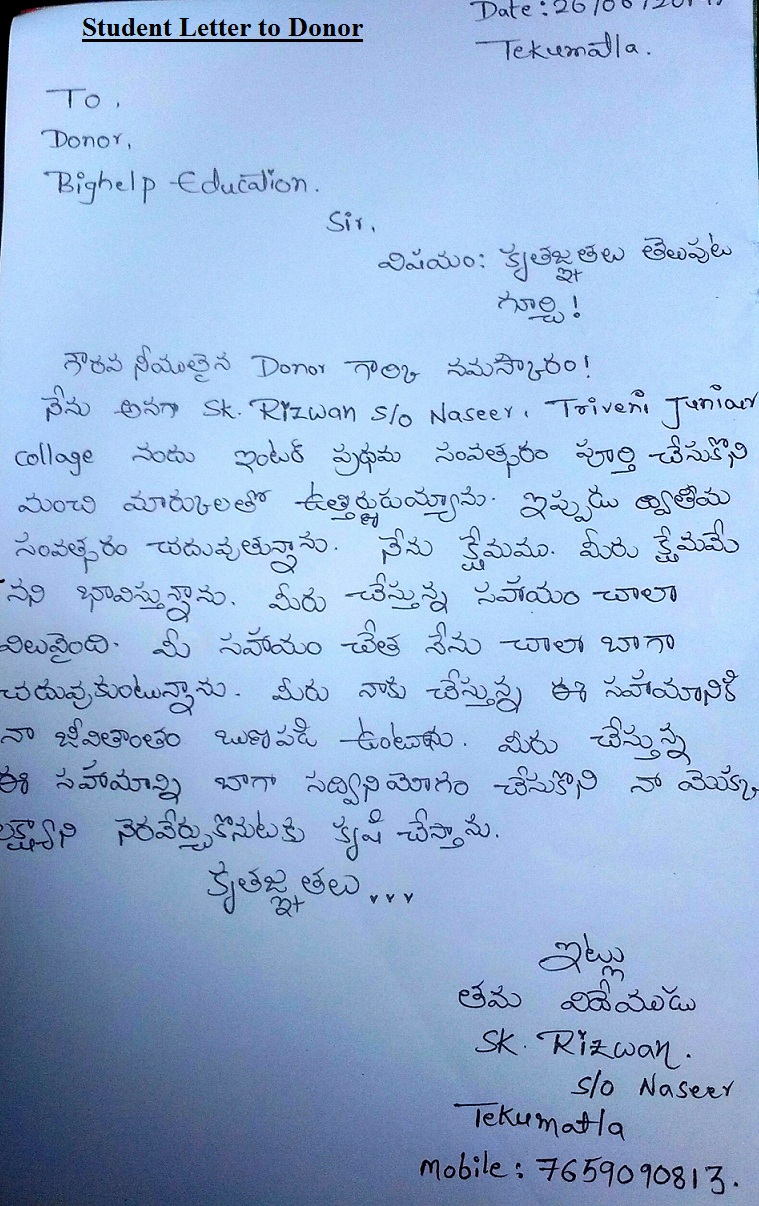 Student Letter to Donor
Date: 26/06/201
Tekumatla.
To,
Donor,
Bighelp Education.
Sir,
విషయం: కృతజ్ఞతలు తెలుపుట
గూర్చి!
గౌరవ నీయులైన Donor గార్కి నమస్కారం!
నేను అనగా SK. Rizwan S/o Naseer, Triveni Junior
collage నందు ఇంటర్ ప్రథమ సంవత్సరం పూర్తి చేసుకొని
మంచి మార్కులతో ఉత్తీర్ణుడయ్యాను. ఇప్పుడు ద్వితీయ
సంవత్సరం చదువుతున్నాను. నేను క్షేమము. మీరు క్షేమమే
నని భావిస్తున్నాను. మీరు చేస్తున్న సహాయం చాలా
విలువైంది. మీ సహాయం చేత నేను చాలా బాగా
చదువుకుంటున్నాను. మీరు నాకు చేస్తున్న ఈ సహామానికి
నా జీవితాంతం ఋణపడి ఉంటాను. మీరు చేస్తున్న
ఈ సహామాన్ని బాగా సద్వినియోగం చేసుకొని నా యొక్క
లక్ష్యాని నెరవేర్చుకొనుటకు కృషి చేస్తాను.
కృతజ్ఞతలు...
ఇట్లు
తమ విధేయుడు
SK. Rizwan.
S/o Naseer
Tekumatla
Mobile: 7659090813.